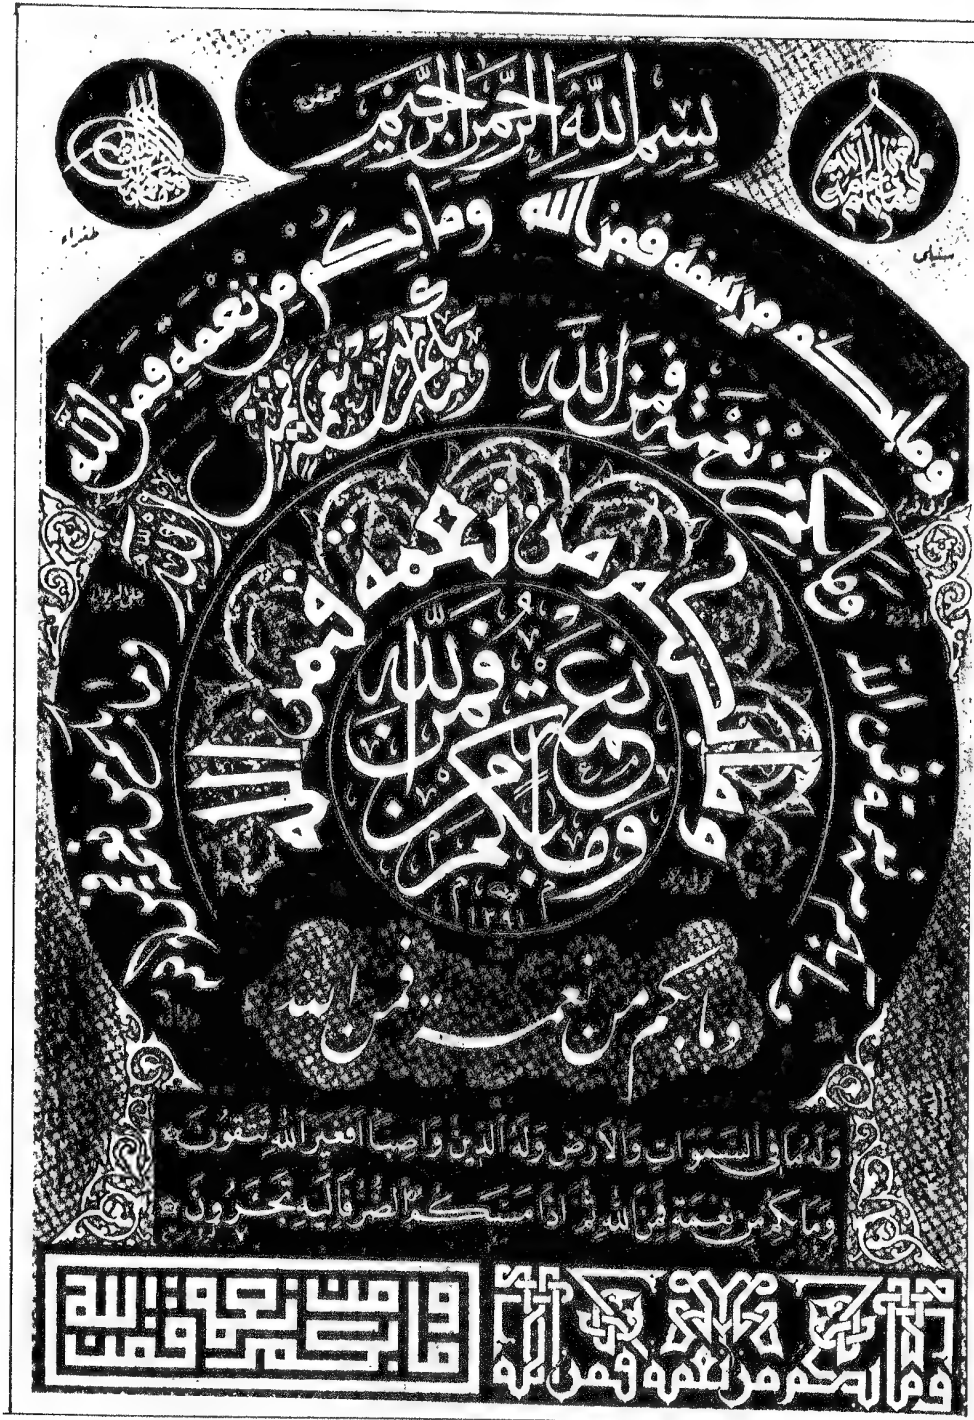 بِسْمِ اللهِ الرَّحْمٰنِ الرَّحِيْمِ
محقق
طغراء
سنبلي
وما بكم من نعمة فمن الله
وما بكم من نعمة فمن الله
وما بكم من نعمة فمن الله
وما بكم من نعمة فمن الله
وما بكم من نعمة فمن الله
وما بكم من نعمة فمن الله
وما بكم من نعمة فمن الله
وما بكم من نعمة فمن الله
١٣٩١
وما بكم من نعمة فمن الله
وَلَهُ مَا فِي السَّمٰوَاتِ وَالْاَرْضِ وَلَهُ الدّينُ وَاصِبًا اَفَغَيْرَ اللهِ تَتَّقُونَ
وَمَا بِكُمْ مِنْ نِعْمَةٍ فَمِنَ اللهِ ثُمَّ اِذَا مَسَّكُمُ الضُّرُّ فَاِلَيْهِ تَجْـَٔرُونَ
وما بكم من نعمة فمن الله
وما بكم من نعمة فمن الله